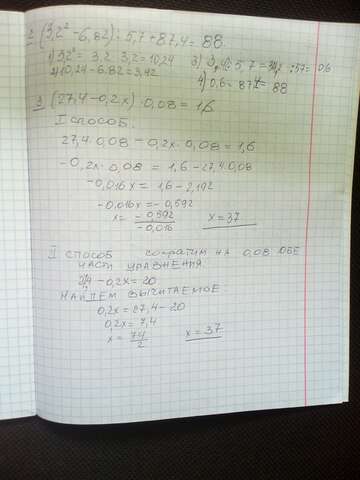 2. (3,2² - 6,82) : 5,7 + 87,4 = 88.
1) 3,2² = 3,2 · 3,2 = 10,24 3) 3,42 : 5,7 = 34,2 : 57 = 0,6
2) 10,24 - 6,82 = 3,42 4) 0,6 + 87,4 = 88
3. (27,4 - 0,2x) · 0,08 = 1,6
I СПОСОБ.
27,4 · 0,08 - 0,2x · 0,08 = 1,6
-0,2x · 0,08 = 1,6 - 27,4 · 0,08
-0,016x = 1,6 - 2,192
-0,016x = -0,592
x = -0,592 / -0,016 x = 37
II СПОСОБ СОКРАТИМ НА 0,08 ОБЕ
ЧАСТ УРАВНЕНИЯ
27,4 - 0,2x = 20
НАЙДЕМ ВЫЧИТАЕМОЕ
0,2x = 27,4 - 20
0,2x = 7,4
x = 74/2 x = 37